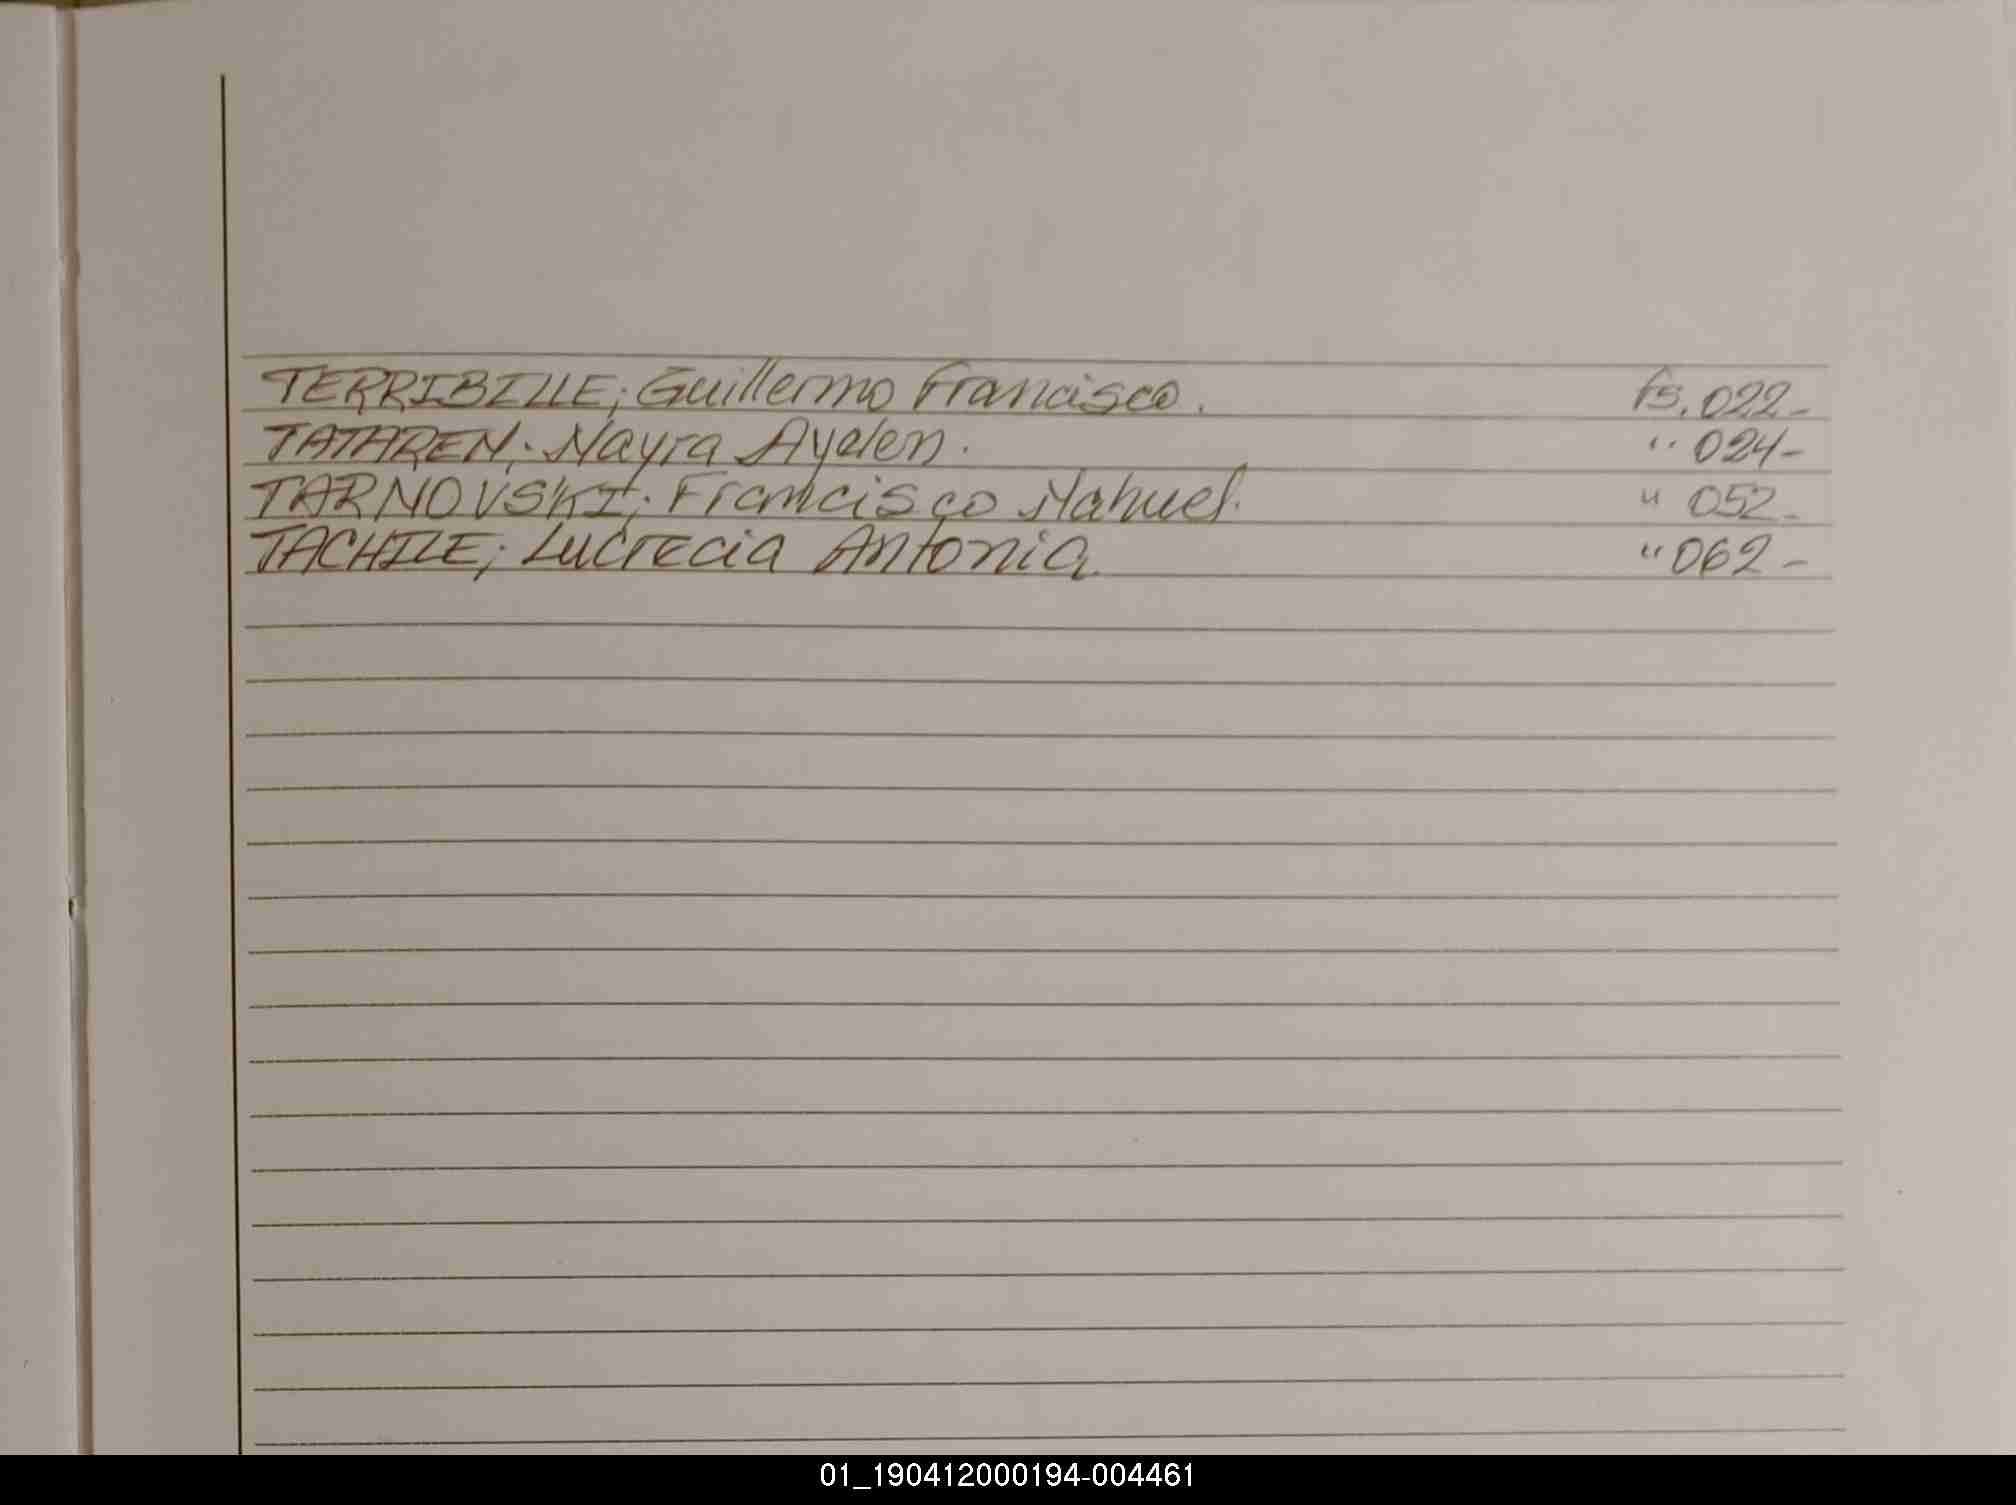 TERRIBILLE; Guillermo Francisco. fs. 022-
TATAREN; Mayra Ayelen. " 024-
TARNOVSKI; Francisco Nahuel. " 052-
TACHILE; Lucrecia Antonia. " 062-
01_190412000194-004461